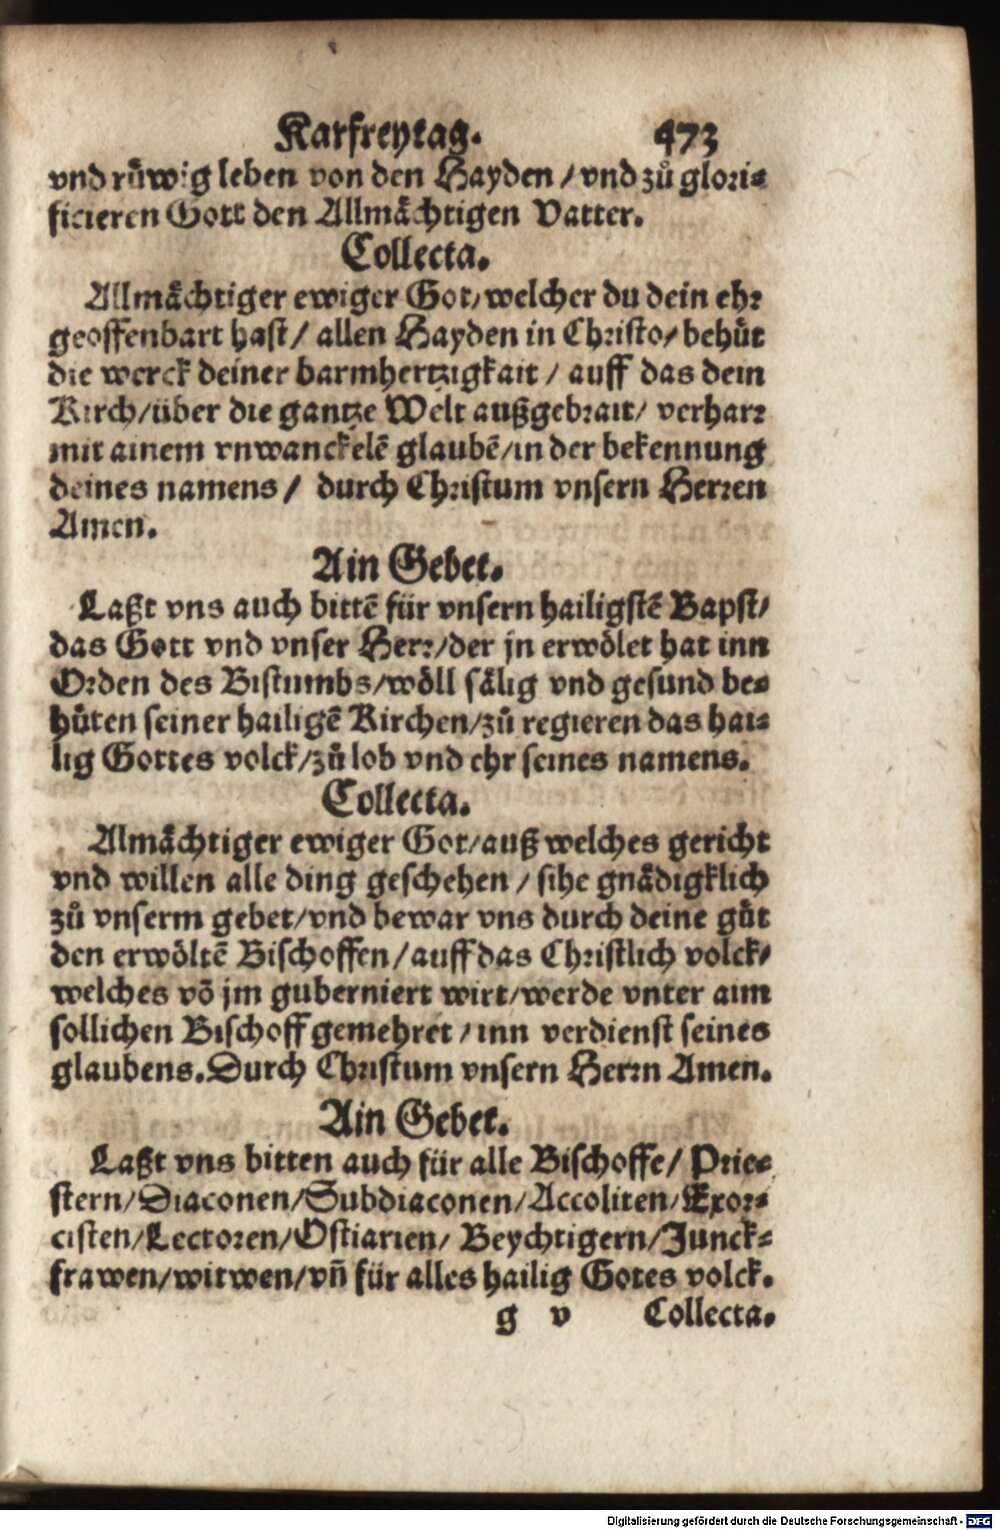 Karfreytag. 473
vnd růwig leben von den Hayden / vnd zů glori-
ficieren Gott den Allmächtigen Vatter.
Collecta.
Allmächtiger ewiger Got / welcher du dein ehr
geoffenbart hast / allen Hayden in Christo / behüt
die werck deiner barmhertzigkait / auff das dein
Kirch / über die gantze Welt außgebrait / verharr
mit ainem vnwanckelē glaubē / in der bekennung
deines namens / durch Christum vnsern Herren
Amen.
Ain Gebet.
Laßt vns auch bittē für vnsern hailigstē Bapst /
das Gott vnd vnser Herr / der jn erwölet hat inn
Orden des Bistumbs / wöll sälig vnd gesund be-
hüten seiner hailigē Kirchen / zů regieren das hai-
lig Gottes volck / zů lob vnd ehr seines namens.
Collecta.
Almächtiger ewiger Got / auß welches gericht
vnd willen alle ding geschehen / sihe gnädigklich
zů vnserm gebet / vnd bewar vns durch deine güt
den erwöltē Bischoffen / auff das Christlich volck /
welches vō jm guberniert wirt / werde vnter aim
sollichen Bischoff gemehret / inn verdienst seines
glaubens. Durch Christum vnsern Herrn Amen.
Ain Gebet.
Laßt vns bitten auch für alle Bischoffe / Prie-
stern / Diaconen / Subdiaconen / Accoliten / Exor-
cisten / Lectoren / Ostiarien / Beychtigern / Junck-
frawen / witwen / vñ für alles hailig Gotes volck.
g v Collecta.
Digitalisierung gefördert durch die Deutsche Forschungsgemeinschaft - DFG